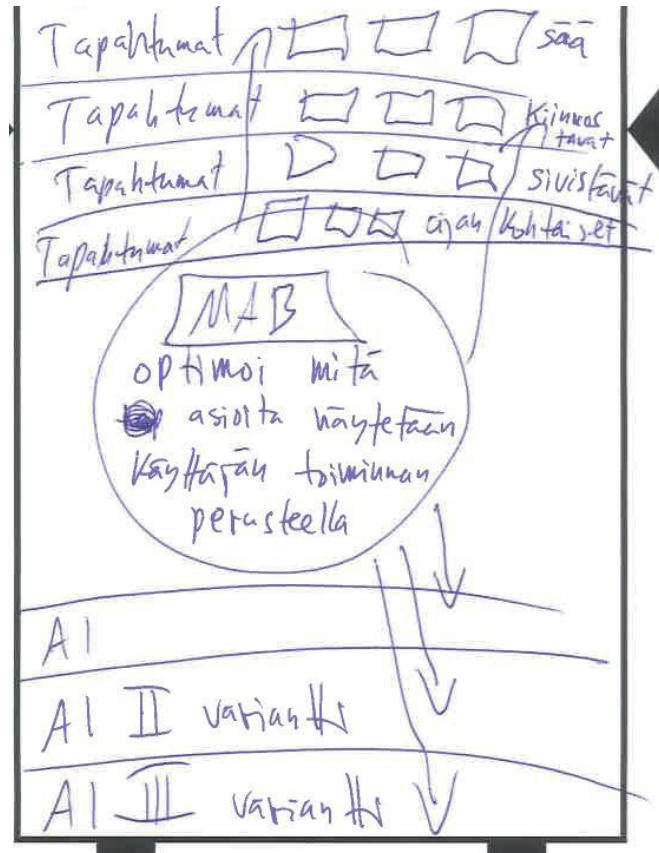 Tapahtumat sää
Tapahtumat Kiinnos
tavat
Tapahtumat sivistävät
Tapahtumat ajan kohtaiset
MAB
optimoi mitä
asioita näytetään
käyttäjän toiminnan
perusteella
AI
AI II variantti
AI III variantti